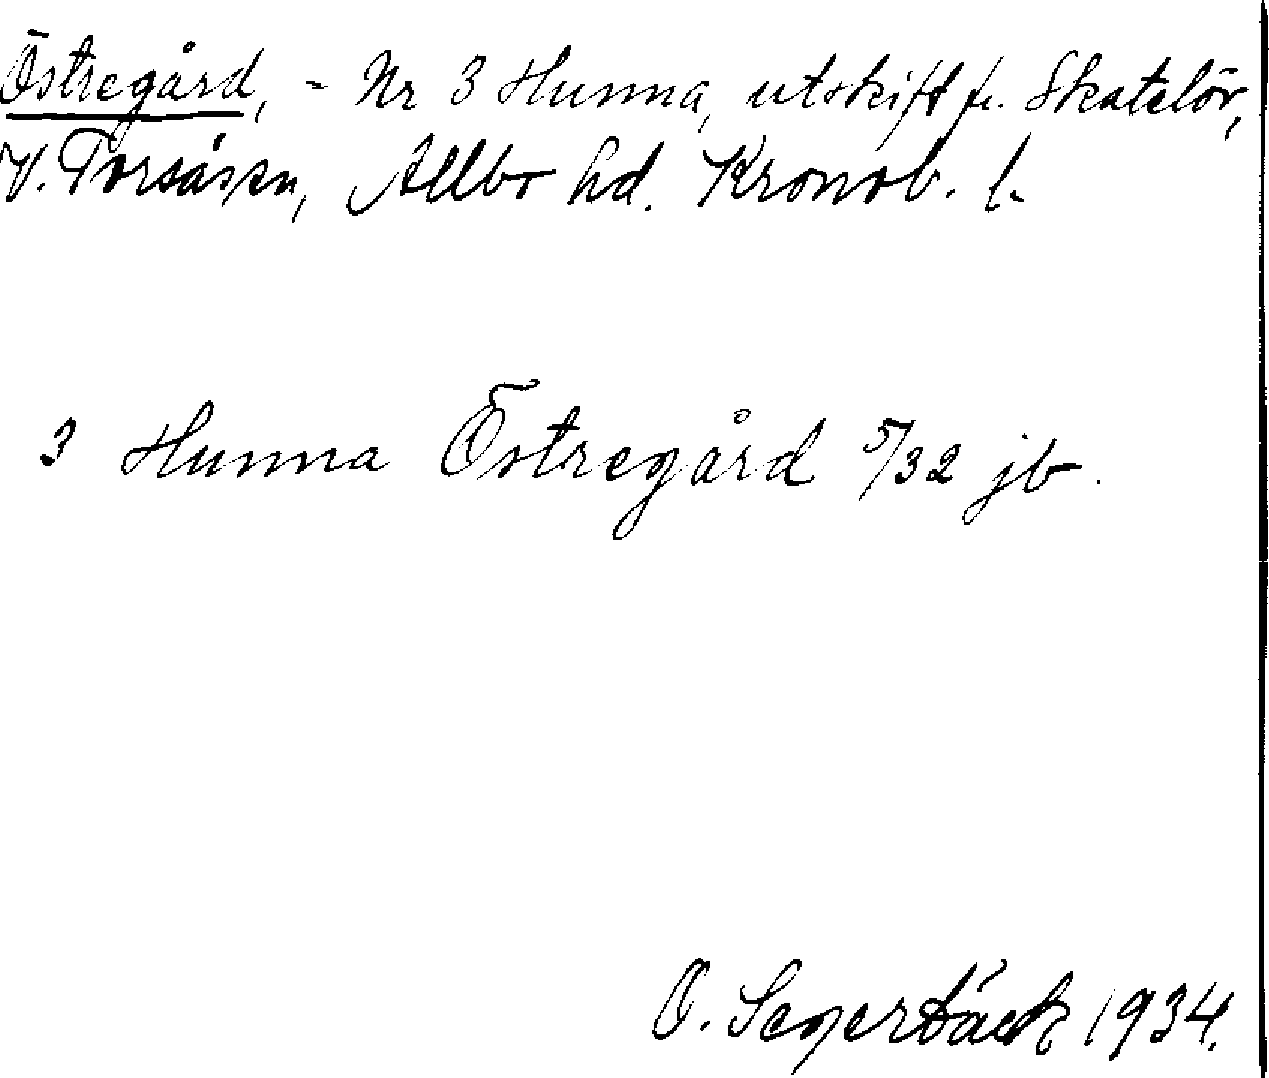 Östregård, - Nr 3 Hunna, utskift fr. Skatelöv,
V. Torsås sn, Allbo hd. Kronob. l.
3 Hunna Östregård 5/32 jb.
O. Segerbäck 1934.